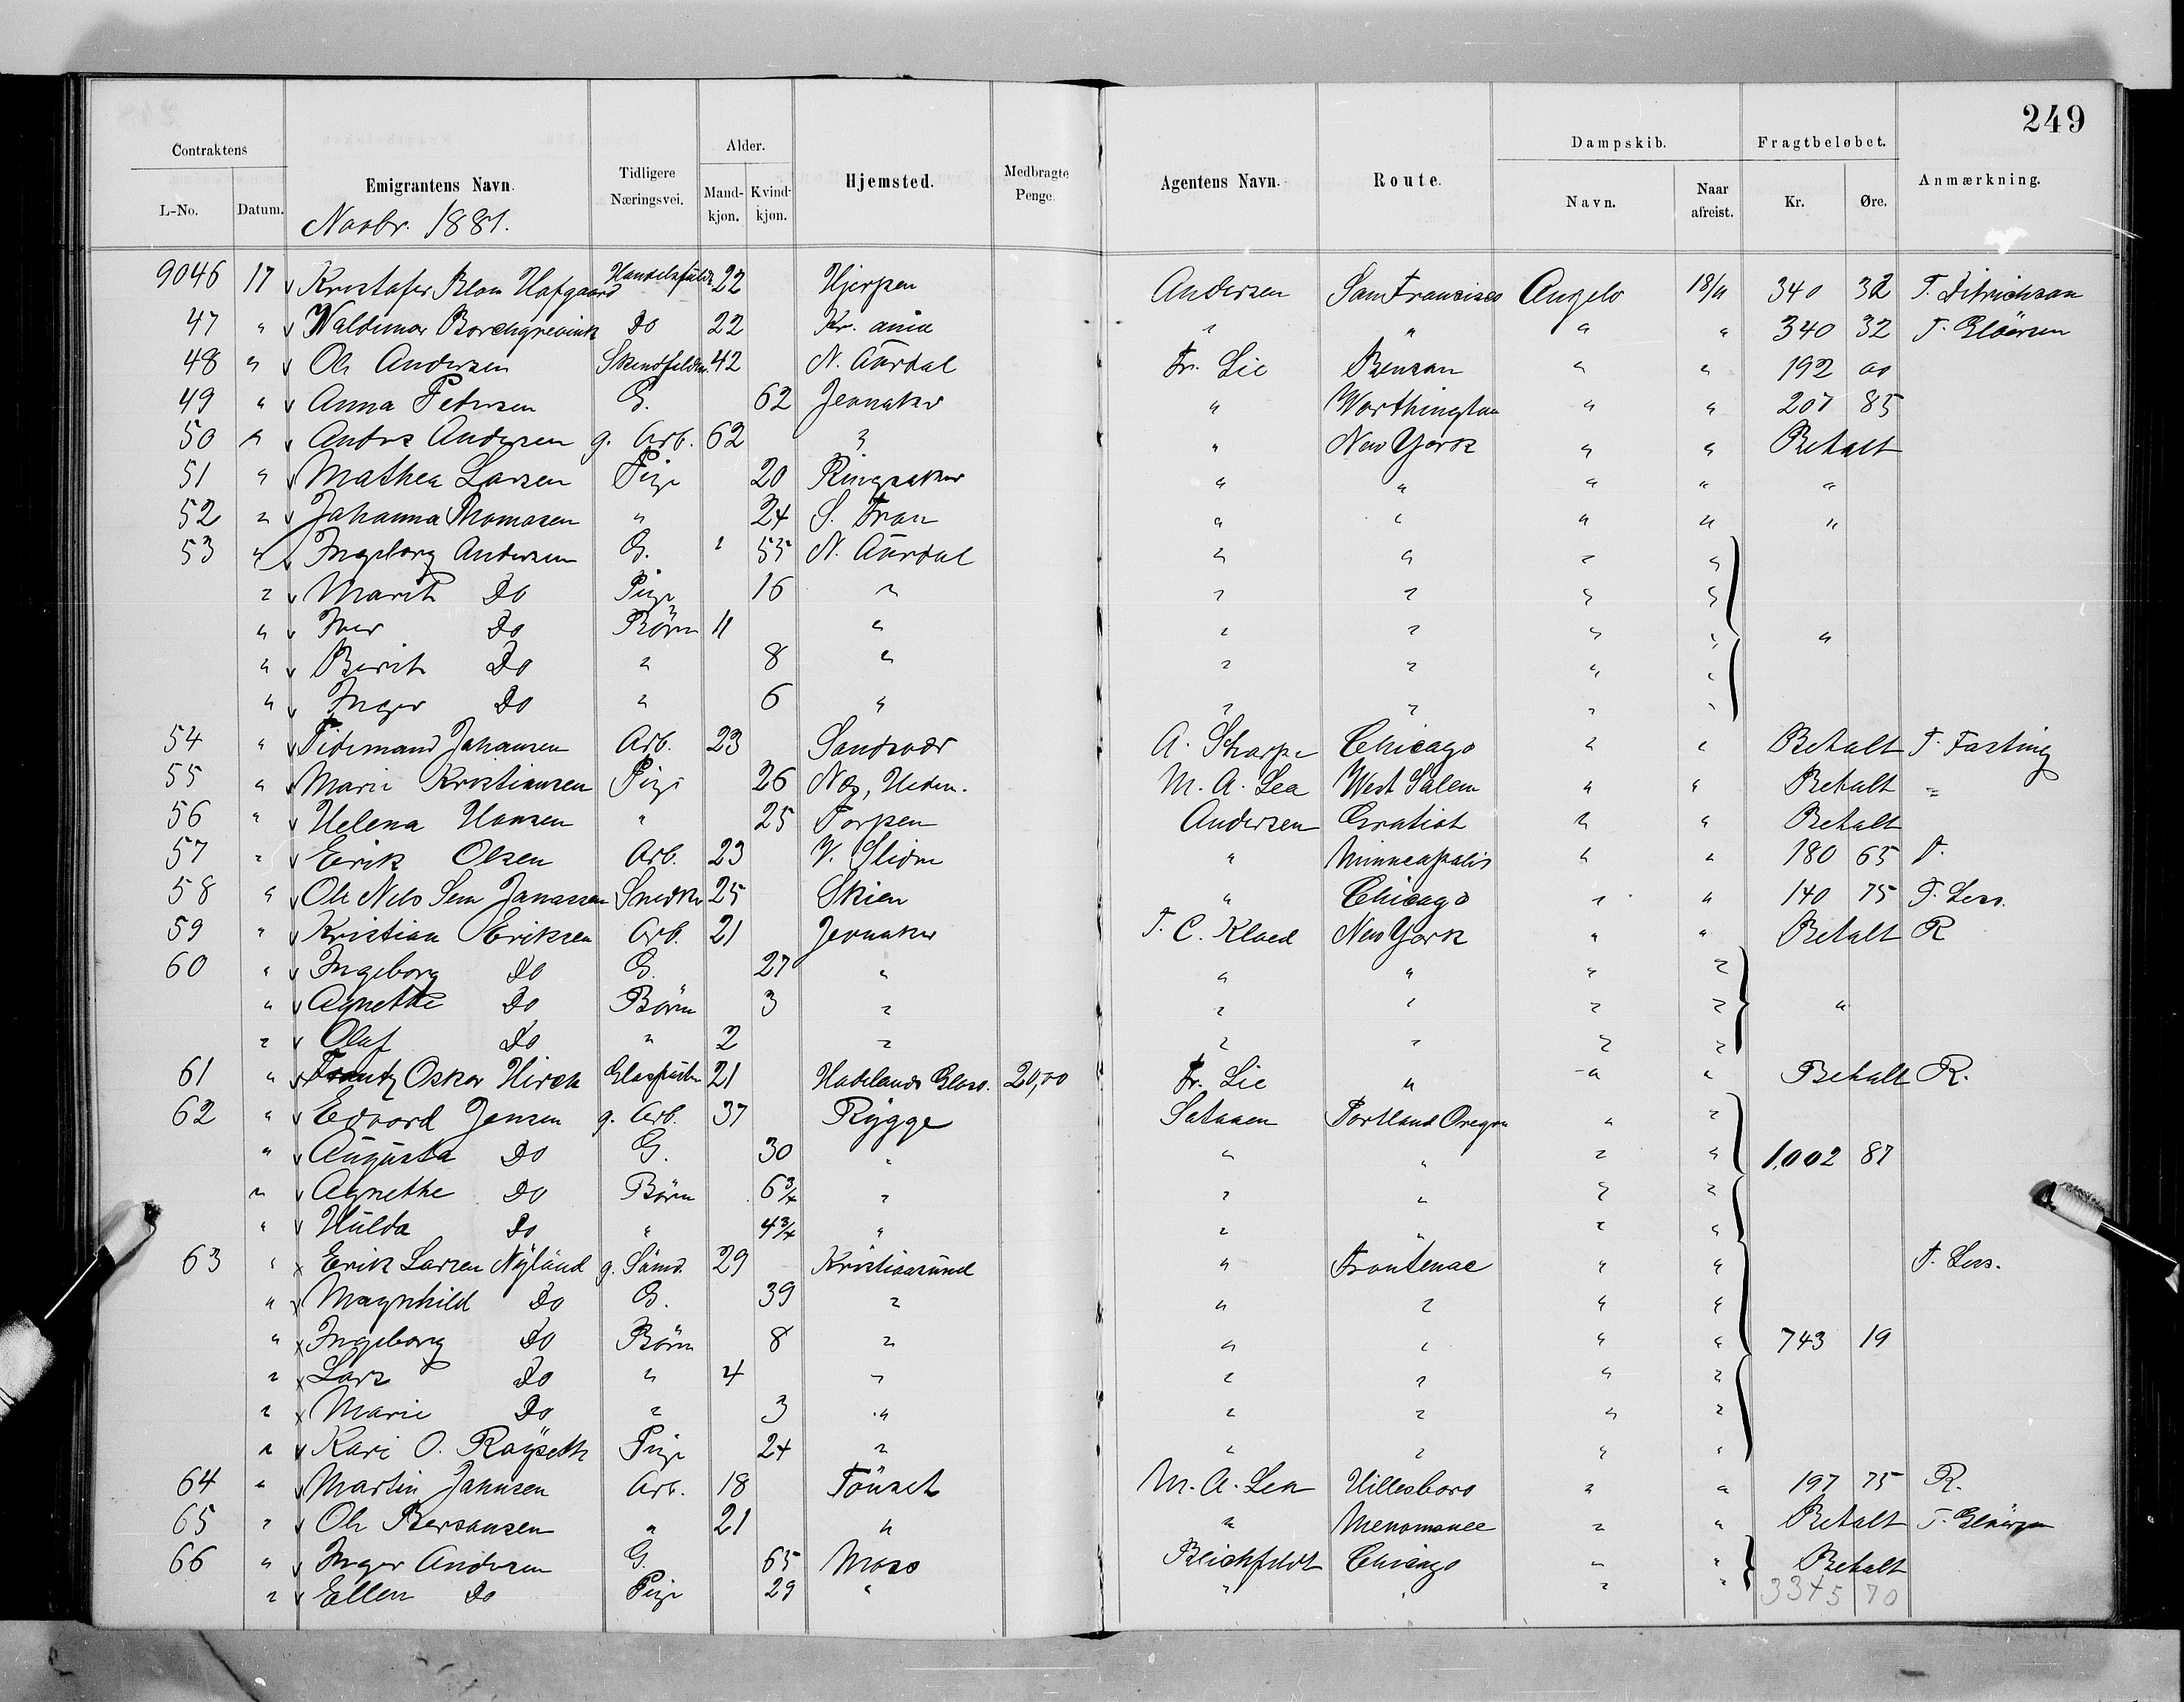 249
Contraktens
Emigrantens Navn.
Tidligere Næringsvei.
Alder.
Hjemsted.
Medbragte Penge.
Agentens Navn.
Route.
Dampskib.
Fragtbeløbet.
Anmærkning.
L-No. Datum. Mand-kjøn. Kvind-kjøn. Navn. Naar afreist. Kr. Øre.
Novbr. 1881.
9046 17 v Kristofer Blom Hofgaard 22 Hjerpen Andersen San Francisco Angelo 18/11 340 32 T. Ditrichson
47 " v Waldemar Borchgrevink Do 22 Kr. ania " " " " 340 32 T. Gløersen
48 " v Ole Andersen 42 N. Aurdal Fr. Lie Benson " " 192 00
49 " v Anna Petersen G. 62 Jevnaker " Worthington " " 207 85
50 " v Andrs Andersen g. Arb. 62 " " New York " " Betalt
51 " v Mathea Larsen Pige 20 Ringsaker " " " " "
52 " v Johanna Thomasen " 24 S. Fron " " " " "
53 " v Ingeborg Andersen G. " 55 N. Aurdal " " " "
" v Marit Do Pige 16 " " " " "
" v Iver Do Börn 11 " " " " " "
" v Berit Do " 8 " " " " "
" v Inger Do " 6 " " " " "
54 " v Tidemand Johansen Arb. 23 Sandsvær A. Sharpe Chicago " " Betalt T. Fasting
55 " v Marie Kristiansen Pige 26 Næs, Hedm. M. A. Lea West Salem " " Betalt "
56 " v Helena Hansen " 25 Torpen Andersen Gratiot " " Betalt
57 " v Eerik Olsen Arb. 23 V. Slidre " Minneapolis " " 180 65 T.
58 " v Ole Nels Sem Janassen Snedker 25 Skien " Chicago " " 140 75 T. Lers.
59 " v Kristian Eriksen Arb. 21 Jevnaker T. C. Kloed New York " " Betalt R
60 " v Ingeborg Do G. 27 " " " " "
" v Agnethe Do Börn 3 " " " " " "
" v Olaf Do " 2 " " " " "
61 " v Frantz Oskar Hirsch 21 Hadelands Glasv. 20,00 Fr. Lie " " " Betalt R.
62 " v Edvard Jensen g. Arb. 37 Rygge Portland Oregon " "
" v Augusta Do G. 30 " " " " " 1,002 87
" v Agnethe Do Börn 6 3/4 " " " " "
" v Hulda Do " 4 3/4 " " " " "
63 " x Erik Larsen Nylund g. Sömd. 29 Kristiansund " Frontenac " " T. Lers.
" x Magnhild Do G. 39 " " " " "
" x Ingeborg Do Börn 8 " " " " " 743 19
" x Lars Do " 4 " " " " "
" x Marie Do " 3 " " " " "
" v Kari O. Röyseth Pige 24 " " " " "
64 " v Martin Johnsen Arb. 18 Tönset M. A. Lea Hillesboro " " 197 75 R.
65 " v Ole Bersansen " 21 " " Menomonee " " Betalt T. Gløersen
66 " v Inger Andersen G. 65 Moss Blichfeldt Chicago " " Betalt
" v Ellen Do Pige 29 " " " " " 3345 70